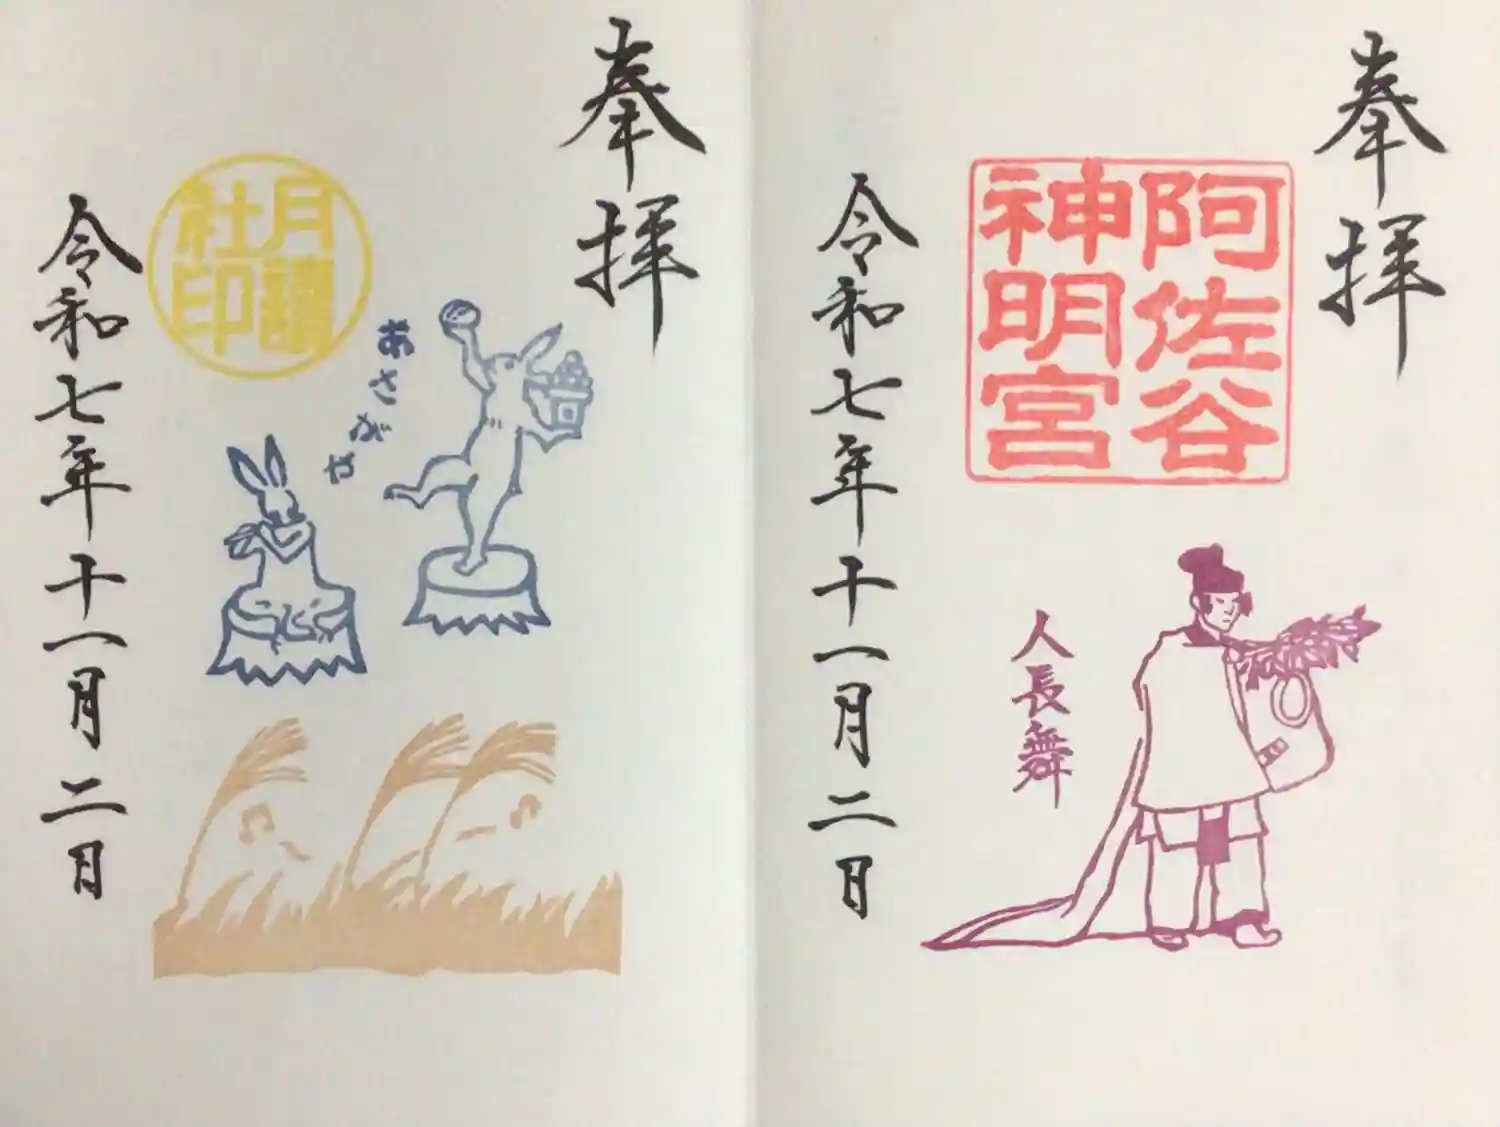 奉拝
阿佐谷
神明宮
人長舞
令和七年十一月二日
奉拝
月讀
社印
あさがや
令和七年十一月二日